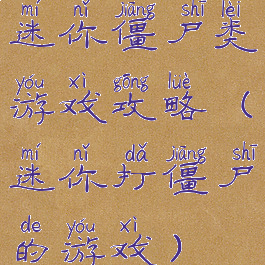 mí nǐ jiāng shī lèi
迷你僵尸类
yóu xì gōng lüè
游戏攻略（
mí nǐ dǎ jiāng shī
迷你打僵尸
de yóu xì
的游戏）